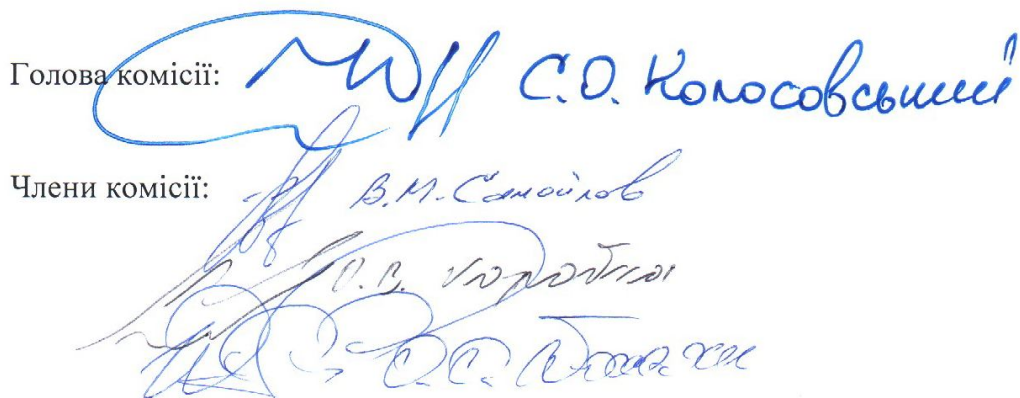 Голова комісії: С.О. Колосовський
Члени комісії: В.М. Самойлов
О.В. Коротка
О.С.